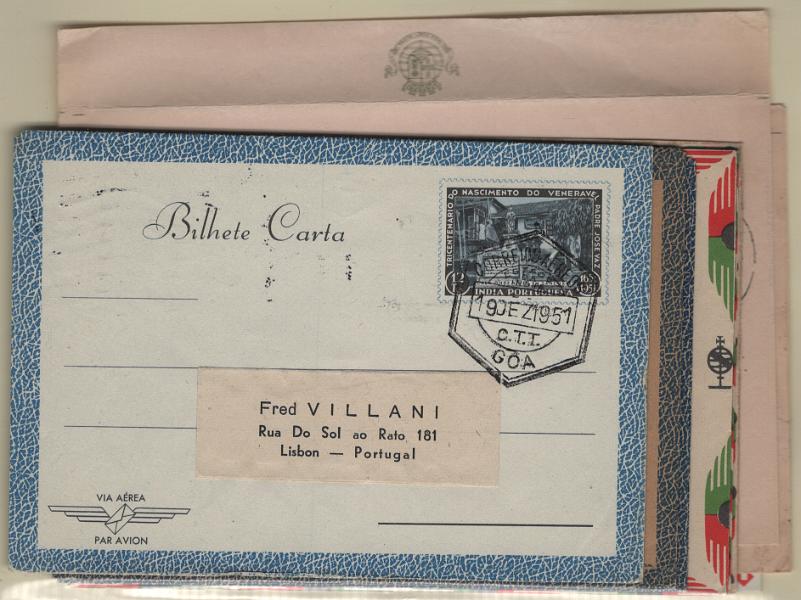 Bilhete Carta
TRICENTENARIO DO NASCIMENTO DO VENERAVEL PADRE JOSE VAZ
12
1651
1951
INDIA PORTUGUESA
19DEZ1951
C.T.T.
GOA
Fred VILLANI
Rua Do Sol ao Rato 181
Lisbon — Portugal
VIA AÉREA
PAR AVION